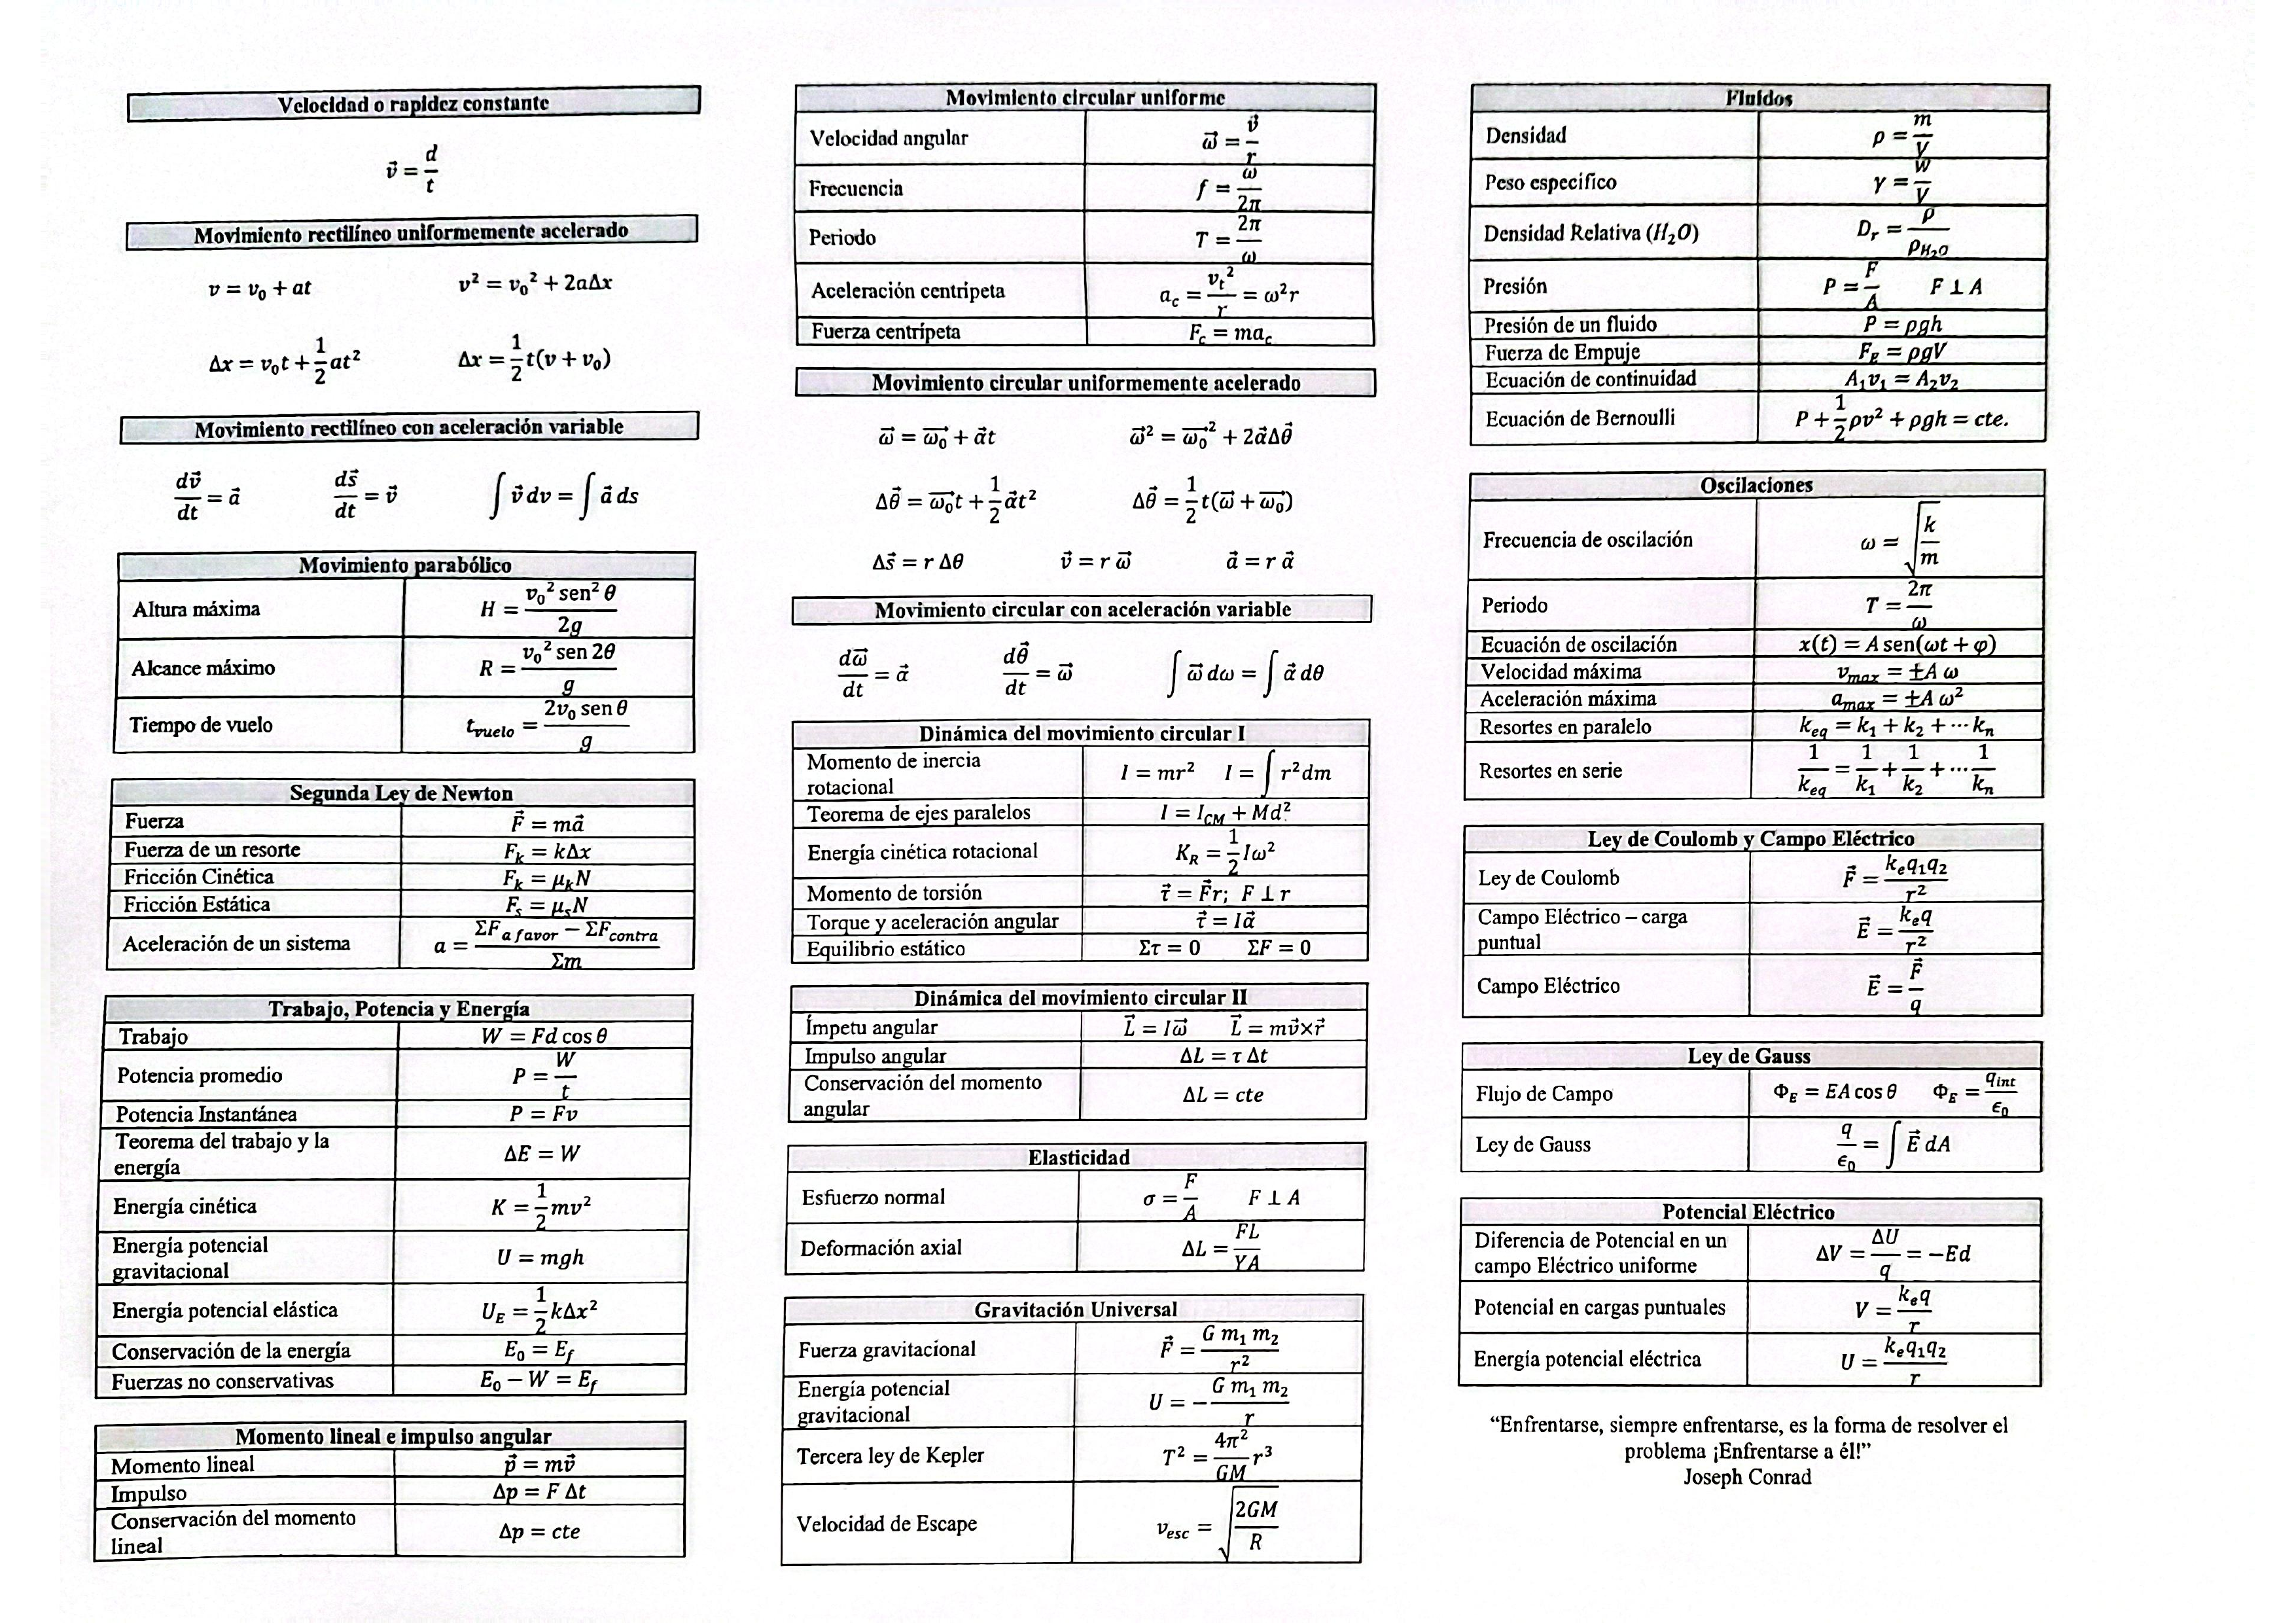 Velocidad o rapidez constante
v⃗ = d/t
Movimiento rectilíneo uniformemente acelerado
v = v₀ + at    v² = v₀² + 2aΔx
Δx = v₀t + 1/2 at²    Δx = 1/2 t(v + v₀)
Movimiento rectilíneo con aceleración variable
dv⃗/dt = a⃗    ds⃗/dt = v⃗    ∫ v⃗ dv = ∫ a⃗ ds
Movimiento parabólico
Altura máxima    H = v₀² sen² θ / 2g
Alcance máximo    R = v₀² sen 2θ / g
Tiempo de vuelo    t_vuelo = 2v₀ sen θ / g
Segunda Ley de Newton
Fuerza    F⃗ = ma⃗
Fuerza de un resorte    F_k = kΔx
Fricción Cinética    F_k = μ_k N
Fricción Estática    F_s = μ_s N
Aceleración de un sistema    a = (ΣF_a favor − ΣF_contra) / Σm
Trabajo, Potencia y Energía
Trabajo    W = Fd cos θ
Potencia promedio    P = W/t
Potencia Instantánea    P = Fv
Teorema del trabajo y la
energía    ΔE = W
Energía cinética    K = 1/2 mv²
Energía potencial
gravitacional    U = mgh
Energía potencial elástica    U_E = 1/2 kΔx²
Conservación de la energía    E₀ = E_f
Fuerzas no conservativas    E₀ − W = E_f
Momento lineal e impulso angular
Momento lineal    p⃗ = mv⃗
Impulso    Δp = F Δt
Conservación del momento
lineal    Δp = cte
Movimiento circular uniforme
Velocidad angular    ω⃗ = v⃗/r
Frecuencia    f = ω/2π
Periodo    T = 2π/ω
Aceleración centrípeta    a_c = v_t²/r = ω²r
Fuerza centrípeta    F_c = ma_c
Movimiento circular uniformemente acelerado
ω⃗ = ω₀⃗ + α⃗t    ω⃗² = ω₀⃗² + 2α⃗Δθ⃗
Δθ⃗ = ω₀⃗t + 1/2 α⃗t²    Δθ⃗ = 1/2 t(ω⃗ + ω₀⃗)
Δs⃗ = r Δθ    v⃗ = r ω⃗    a⃗ = r α⃗
Movimiento circular con aceleración variable
dω⃗/dt = α⃗    dθ⃗/dt = ω⃗    ∫ ω⃗ dω = ∫ α⃗ dθ
Dinámica del movimiento circular I
Momento de inercia
rotacional    I = mr²    I = ∫ r²dm
Teorema de ejes paralelos    I = I_CM + Md²
Energía cinética rotacional    K_R = 1/2 Iω²
Momento de torsión    τ⃗ = F⃗r; F ⊥ r
Torque y aceleración angular    τ⃗ = Iα⃗
Equilibrio estático    Στ = 0    ΣF = 0
Dinámica del movimiento circular II
Ímpetu angular    L⃗ = Iω⃗    L⃗ = mv⃗×r⃗
Impulso angular    ΔL = τ Δt
Conservación del momento
angular    ΔL = cte
Elasticidad
Esfuerzo normal    σ = F/A    F ⊥ A
Deformación axial    ΔL = FL/YA
Gravitación Universal
Fuerza gravitacional    F⃗ = G m₁ m₂ / r²
Energía potencial
gravitacional    U = − G m₁ m₂ / r
Tercera ley de Kepler    T² = 4π²/GM r³
Velocidad de Escape    v_esc = √(2GM/R)
Fluidos
Densidad    ρ = m/V
Peso específico    γ = W/V
Densidad Relativa (H₂O)    D_r = ρ/ρ_H₂O
Presión    P = F/A    F ⊥ A
Presión de un fluido    P = ρgh
Fuerza de Empuje    F_E = ρgV
Ecuación de continuidad    A₁v₁ = A₂v₂
Ecuación de Bernoulli    P + 1/2 ρv² + ρgh = cte.
Oscilaciones
Frecuencia de oscilación    ω = √(k/m)
Periodo    T = 2π/ω
Ecuación de oscilación    x(t) = A sen(ωt + φ)
Velocidad máxima    v_max = ±A ω
Aceleración máxima    a_max = ±A ω²
Resortes en paralelo    k_eq = k₁ + k₂ + ⋯ k_n
Resortes en serie    1/k_eq = 1/k₁ + 1/k₂ + ⋯ 1/k_n
Ley de Coulomb y Campo Eléctrico
Ley de Coulomb    F⃗ = k_e q₁q₂ / r²
Campo Eléctrico – carga
puntual    E⃗ = k_e q / r²
Campo Eléctrico    E⃗ = F⃗/q
Ley de Gauss
Flujo de Campo    Φ_E = EA cos θ    Φ_E = q_int/ϵ₀
Ley de Gauss    q/ϵ₀ = ∫ E⃗ dA
Potencial Eléctrico
Diferencia de Potencial en un
campo Eléctrico uniforme    ΔV = ΔU/q = −Ed
Potencial en cargas puntuales    V = k_e q / r
Energía potencial eléctrica    U = k_e q₁q₂ / r
“Enfrentarse, siempre enfrentarse, es la forma de resolver el
problema ¡Enfrentarse a él!”
Joseph Conrad